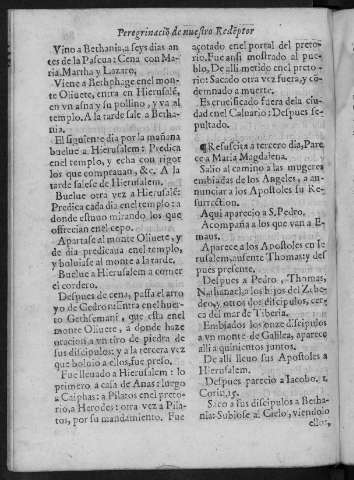 Peregrinació de nuestro Redẽptor
Vino a Bethania, a seys dias an
tes de la Pascua: Cena con Ma-
ria, Martha y Lazaro,
Viene a Bethphage en el mon-
te Oliuete, entra en Hierusalẽ,
en vn asna y su pollino, y va al
templo. A la tarde sale a Betha-
nia.
El siguiente dia por la mañana
buelue a Hierusalem: Predica
en el templo, y echa con rigot
los que comprauan, &c. A la
tarde sale se de Hierusalem.
Buelue otra vez a Hierusalẽ:
Predica cada dia en el templo: a
donde estuuo mirando los que
ofrecian en el cepo.
Apartase al monte Oliuete, y
de dia predicaua en el templo,
y boluiase al monte a la tarde.
Buelue a Hierusalem a comer
el cordero.
Despues de cena, passa el arro
yo de Cedron: Entra en el huer
to Gethsemani, que esta en el
monte Oliuete, a donde haze
oracion a vn tiro de piedra de
sus discipulos: y a la tercera vez
que boluio a ellos, fue preso.
Fue lleuado a Hierusalem: lo
primero a casa de Anas: luego
a Caiphas: a Pilatos en el preto-
rio, a Herodes: otra vez a Pila-
tos, por su mandamiento. Fue
açotado en el portal del preto-
rio. Fue ansi mostrado al pue-
blo, De alli metido en el preto-
rio: Sacado otra vez fuera, y cõ-
demnado a muerte.
Es crucificado fuera de la ciu-
dad en el Caluario: Despues se-
pultado.
¶ Resuscita a tercero dia, Pare
ce a Maria Magdalena.
Salio al camino a las mugeres
embiadas de los Angeles, a an-
nunciar a los Apostoles su Re-
surrection.
Aqui aparecio a S. Pedro.
Acompaña a los que van a E-
maus.
Aparece a los Apostoles en Ie
rusalem, ausente Thomas: y des
pues presente.
Despues a Pedro, Thomas,
Nathanael, a los hijos del Zebe
deo, y otros dos discipulos, cer-
ca del mar de Tiberia.
Embiados los onze discipulos
a vn monte de Galilea, aparece
alli a quinientos juntos.
De alli lleuo sus Apostoles a
Hierusalem.
Despues parecio a Iacobo. 1.
Corin. 15.
Saco a sus discipulos a Betha-
nia: Subiose al Cielo, viendolo
ellos,